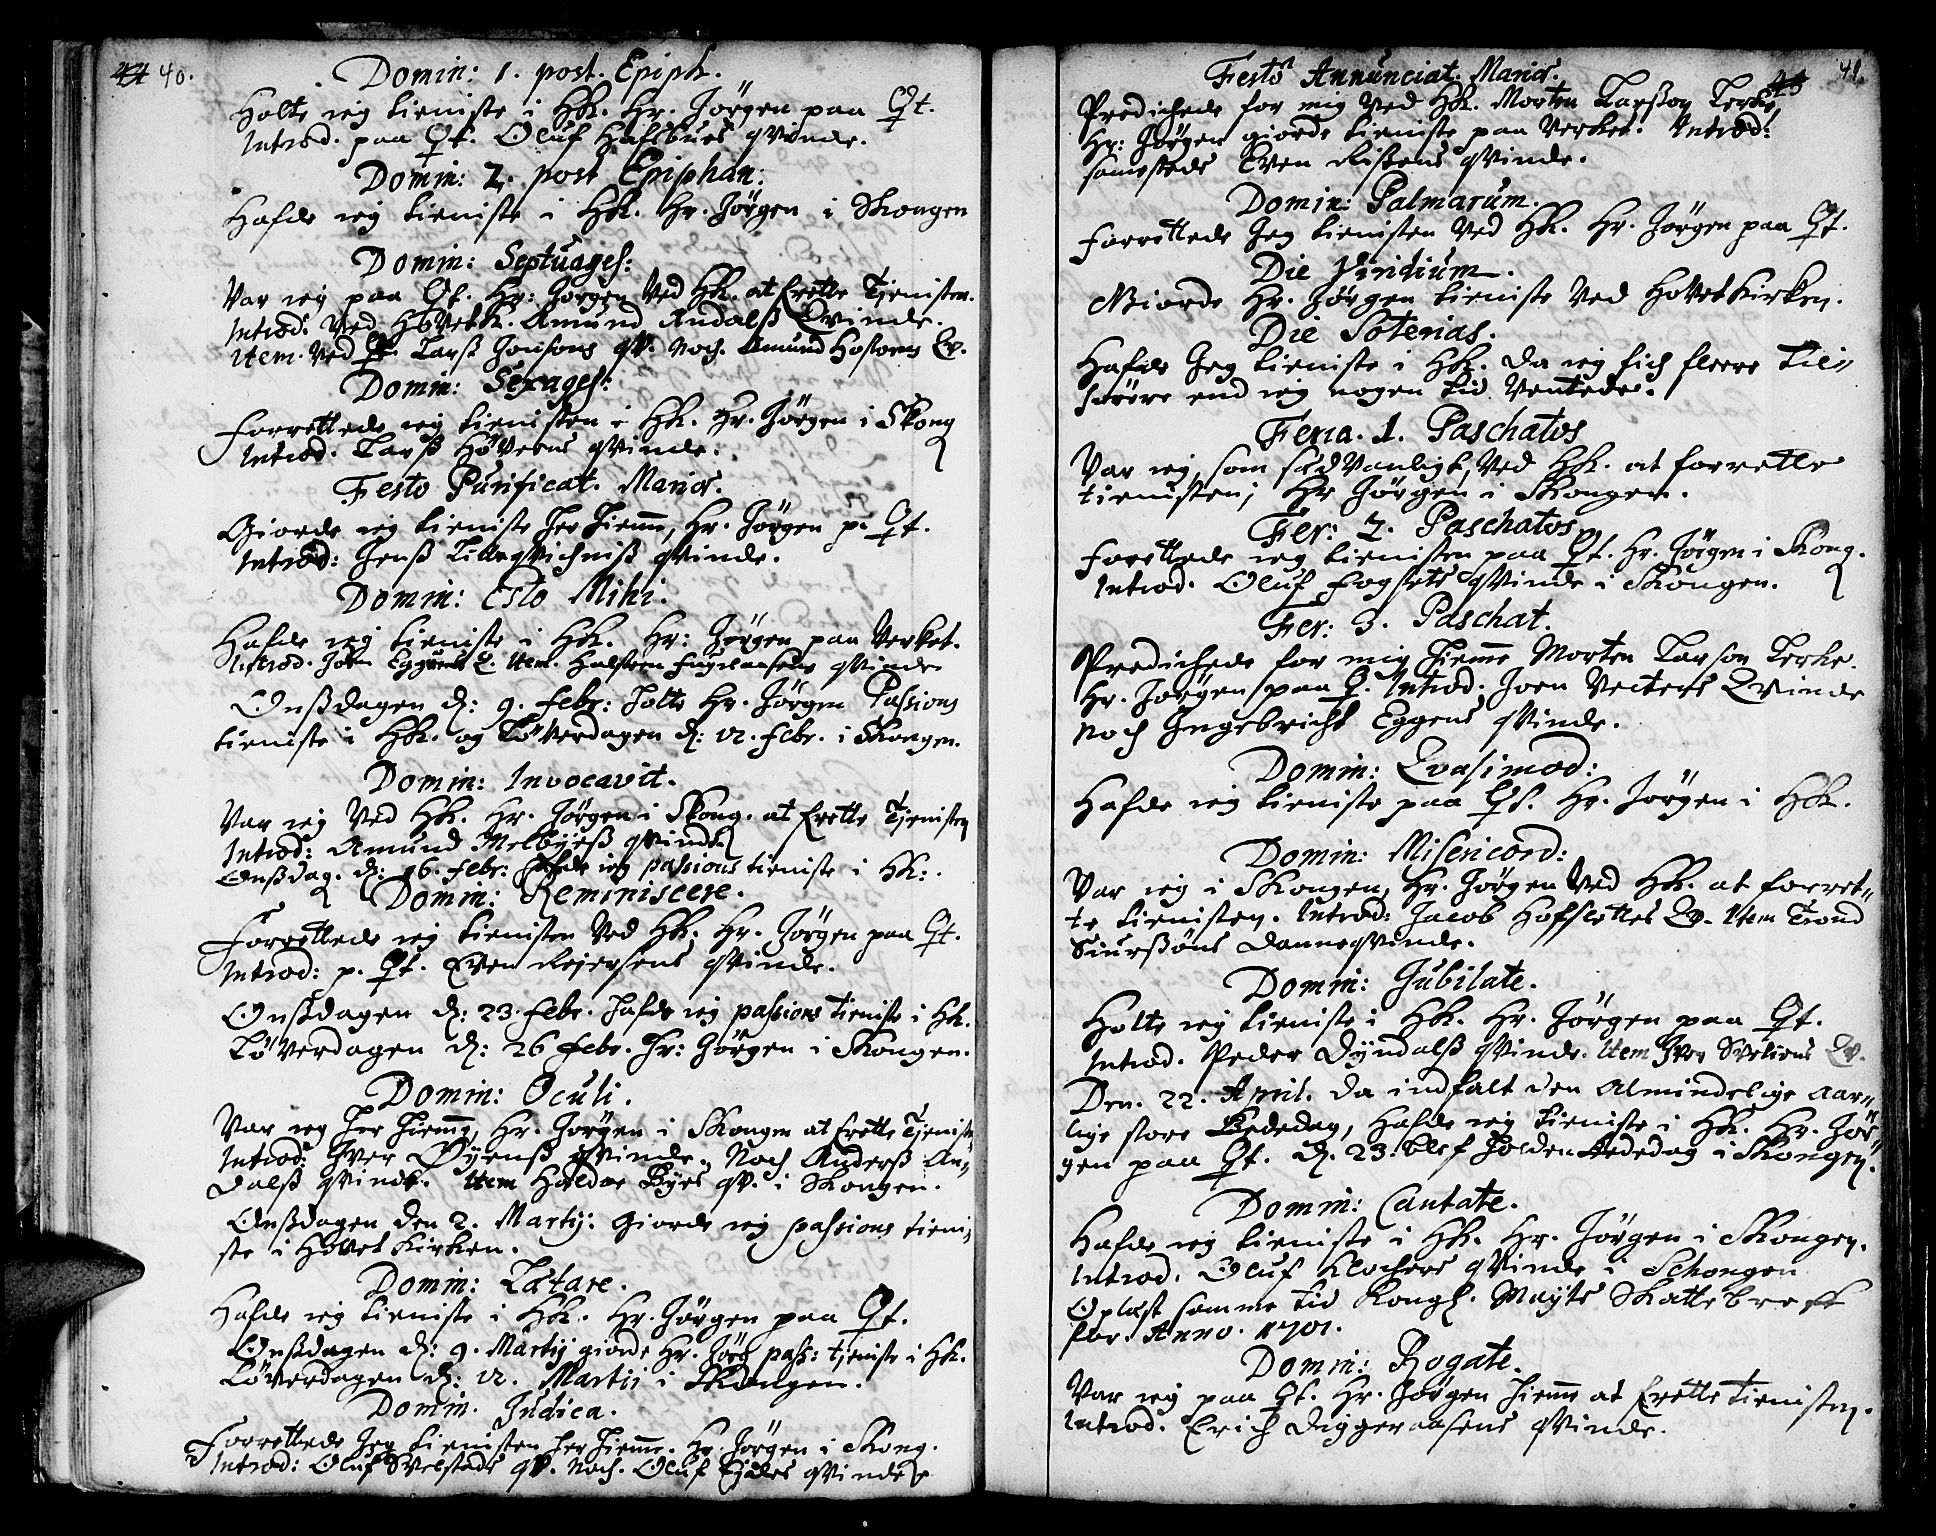 40.
Domin: 1. post. Epiph.
Holte ieg tieniste i HK. Hr. Jörgen paa Qf.
Introd. paa Qf. Oluf Hafsbues qvinde.
Domin: 2. post Epiphan:
Hafde ieg tieniste i HK. Hr. Jörgen i Skongen
Domin: Septuages:
Var ieg paa Qf. Hr: Jörgen Ved HK. at forette Tjenisten.
Introd: Ved HovetK. Amund Andalß Qvinde.
item. Ved Qf. Larß Jonsons qv. Noch. Amund Hofsens Qv.
Domin: Sexages:
Forrettede ieg tienisten i HK. Hr. Jörgen i Skong
Introd. Larß Höveens qvinde.
Festo Purificat. Mariæ.
Giorde ieg tieniste her hiemme, Hr. Jörgen p. Qf.
Introd: Jenß qvinde.
Domin: Esto Mihi.
Hafde ieg tieniste i HK. Hr: Jörgen paa Verket.
Introd. John Eggens Q. Item. Halsten qvinde
Onßdagen d: 9. Febr: holte Hr. Jörgen Passions
tieniste i HK. og Löverdagen d: 12. Febr. i Skongen.
Domin: Invocavit.
Var ieg Ved HK. Hr. Jörgen i Skong. at forette Tjenisten
Introd: Amund Melbyeß qvinde
Onßdag. d: 16. Febr: hafde ieg passions tieniste i HK:.
Domin: Reminiscere.
Forrettede ieg tienisten Ved HK. Hr. Jörgen paa Qf.
Introd: p. Qf. Even Rejersens qvinde.
Onßdagen d: 23. Febr. hafde ieg passions tieniste i HK.
Löverdagen d: 26 Febr. Hr: Jörgen i Skongen.
Domin: Oculi.
Var ieg her hiemme, Hr. Jörgen i Skongen at forette Tjeniste
Introd: Iver Öyenß qvinde. Noch Anderß An¬
dalß qvinde. Item Haldor Byes qv. i Skongen.
Onßdagen den 2. Martij: Giorde ieg passions tieni¬
ste i HovetKirken.
Domin: Lætare.
Hafde ieg tieniste i HK. Hr. Jörgen paa Qf.
Onßdagen d: 9. Martij giorde Hr. Jörg pass: tjeniste i HK.
Löverdagen d: 12. Martij i Skongen.
Domin. Judica.
Forrettede Jeg tienisten her hiemme. Hr. Jörgen i Skong.
Introd: Oluf Svelstads qv. Noch. Oluf qvinde
41.
Festo Annunciat. Mariæ.
Predichede for mig Ved HK. Morten Larßon Lerke,
Hr: Jörgen giorde tieniste paa Verket. Introd:
samesteds Even Rißens qvinde.
Domin: Palmarum.
Forrettede Jeg tienisten Ved HK. Hr. Jörgen paa Qf.
Die Viridium.
Giorde Hr. Jörgen tieniste Ved HovetKirken.
Die Soterias.
Hafde Jeg tieniste i HK. da ieg fich fleere Til¬
hörere end ieg nogen tid Ventede.
Feria. 1. Paschatos
Var ieg, som sædVanligt, Ved HK. at forrette
tienisten; Hr Jörgen i Skongen.
Fer: 2. Paschatos
Forettede ieg tienisten paa Qf. Hr. Jörgen i Skong.
Introd. Oluf Fogsets qvinde i Skongen.
Fer: 3. Paschat.
Predichede for mig hiemme Morten Larson Lerke.
Hr. Jörgen paa Q. Introd. Joen Veitens Qvinde
noch Ingebricht Eggens qvinde.
Domin: Qvasimod:
Hafde ieg tieniste paa Qf. Hr. Jörgen i HK.
Domin: Misericord:
Var ieg i Skongen, Hr. Jörgen Ved HK. at forret¬
te tienisten. Introd: Jacob Hofslettes Qv. Item Trond
Siurßöns Danneqvinde.
Domin: Jubilate.
Holte ieg tieniste i HK. Hr. Jörgen paa Qf.
Introd. Peder Dyndalß qvinde. Item Iver Svetiens Qv.
Den. 22. April. da indfalt den Almindelige Aar¬
lige store Bededag, Hafde ieg tieniste i HK. Hr. Jör¬
gen paa Qf. d. 23. blef holden Bededag i Skongen.
Domin: Cantate.
Hafde ieg tieniste i HK. Hr. Jörgen i Skongen.
Introd. Oluf Klochers qvinde i Schongen
Oplæst samme tid Kongl. Mayts Skattebreff
for Anno. 1701.
Domin: Rogate.
Var ieg paa Qf. Hr. Jörgen hiemme at forette tienisten.
Introd. Erich Diggeraasens qvinde.